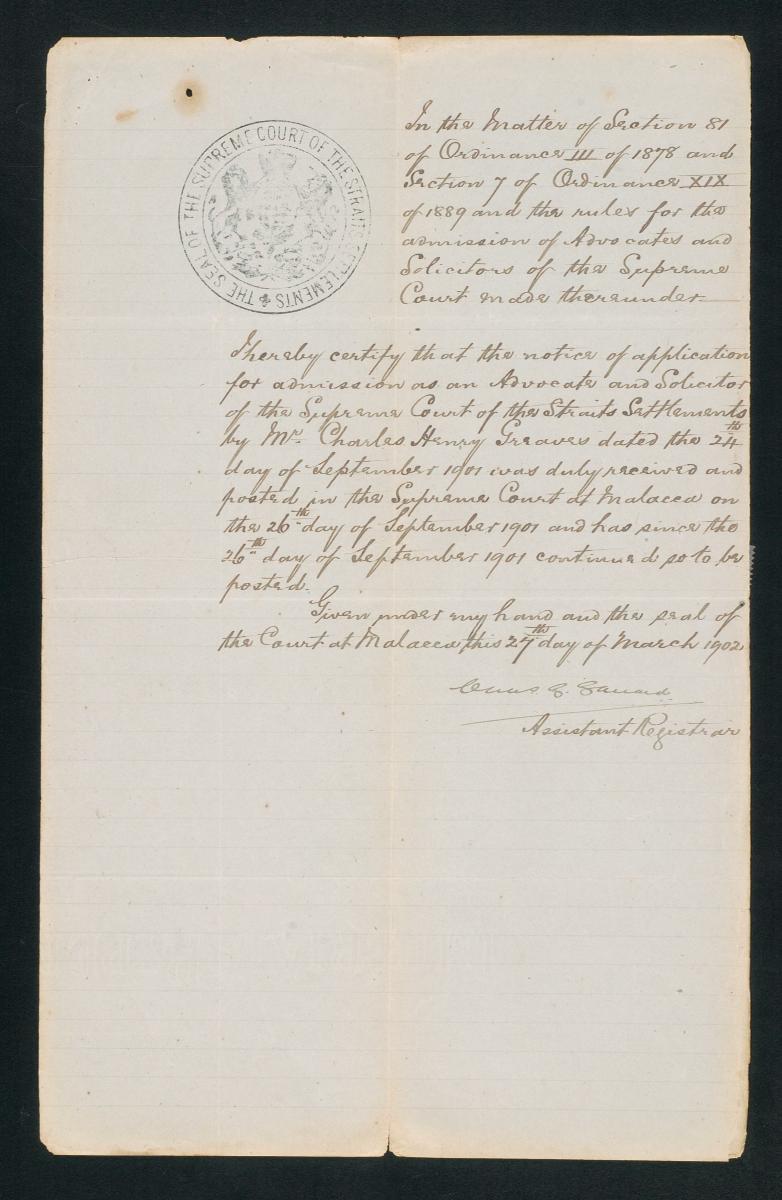 THE SEAL OF THE SUPREME COURT OF THE STRAITS SETTLEMENTS
In the Matter of Section 81
of Ordinance III of 1878 and
Section 7 of Ordinance XIX
of 1889 and the rules for the
admission of Advocates and
Solicitors of the Supreme
Court made thereunder
I hereby certify that the notice of application
for admission as an Advocate and Solicitor
of the Supreme Court of the Straits Settlements
by Mr. Charles Henry Greaves dated the 24th
day of September 1901 was duly received and
posted in the Supreme Court at Malacca on
the 26th day of September 1901 and has since the
26th day of September 1901 continued so to be
posted.
Given under my hand and the seal of
the Court at Malacca this 27th day of March 1902
Assistant Registrar